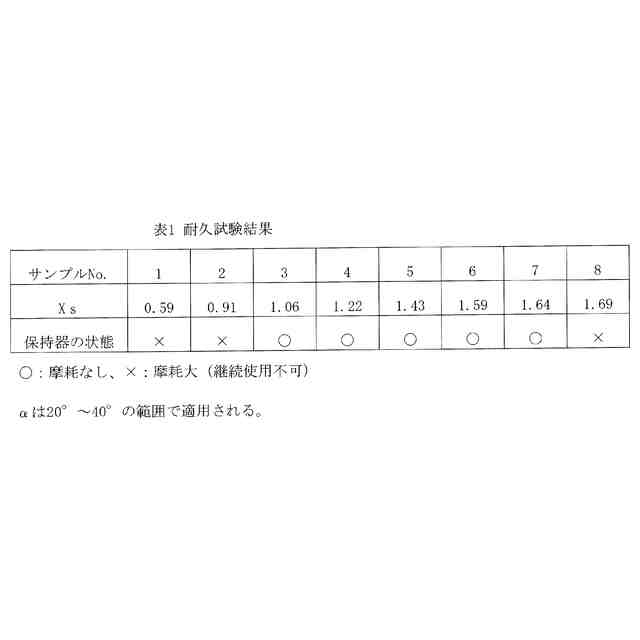 表1 耐久試験結果
サンプルNo. 1 2 3 4 5 6 7 8
Xs 0.59 0.91 1.06 1.22 1.43 1.59 1.64 1.69
保持器の状態 × × ○ ○ ○ ○ ○ ×
○:摩耗なし、×:摩耗大(継続使用不可)
αは20°～40°の範囲で適用される。